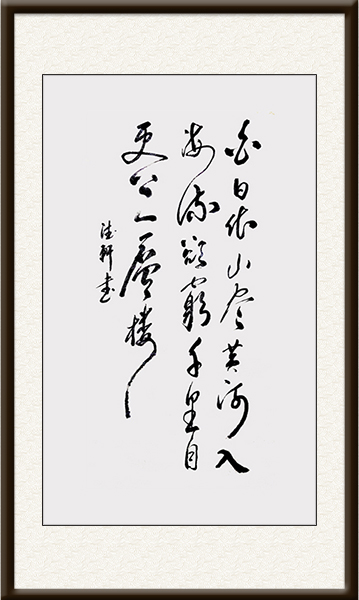 白日依山尽黄河入
海流欲窮千里目
更上一層楼
軒书